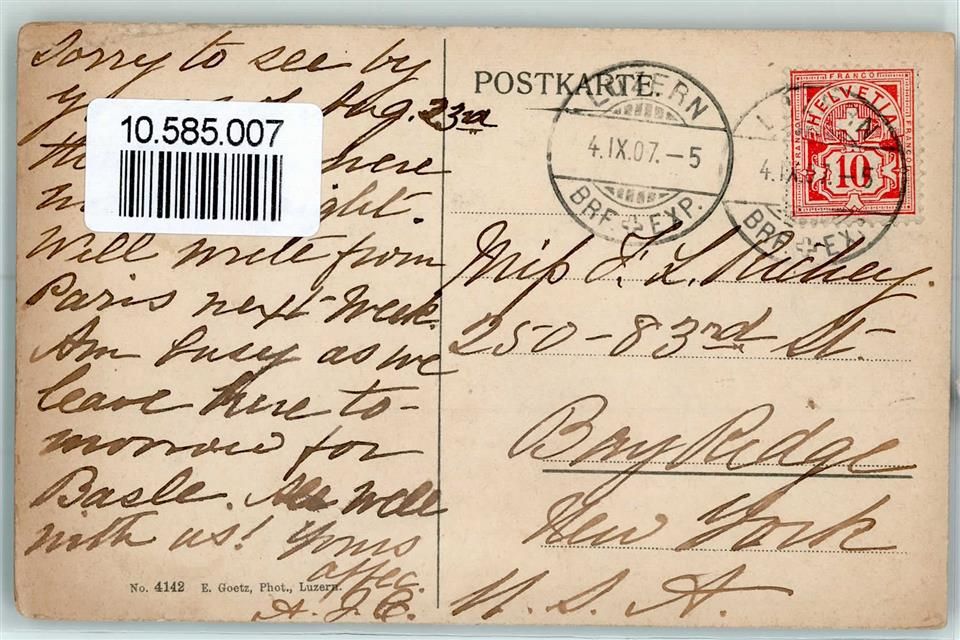 Sorry to see by
Aug. 23rd
10.585.007
here
Will write from
Paris next week.
Am busy as we
leave here to-
morrow for
Basle. All well
with us! Yours
affec.
A. J. E.
No. 4142 E. Goetz, Phot., Luzern.
POSTKARTE.
LUZERN
4.IX.07.-5
BRF. EXP.
FRANCO
HELVETIA
FRANCO
FRANCO
10
4.IX.07.-5
BRF. EXP.
Miss F. L.
250-83rd St.
Bay Ridge
New York
U. S. A.